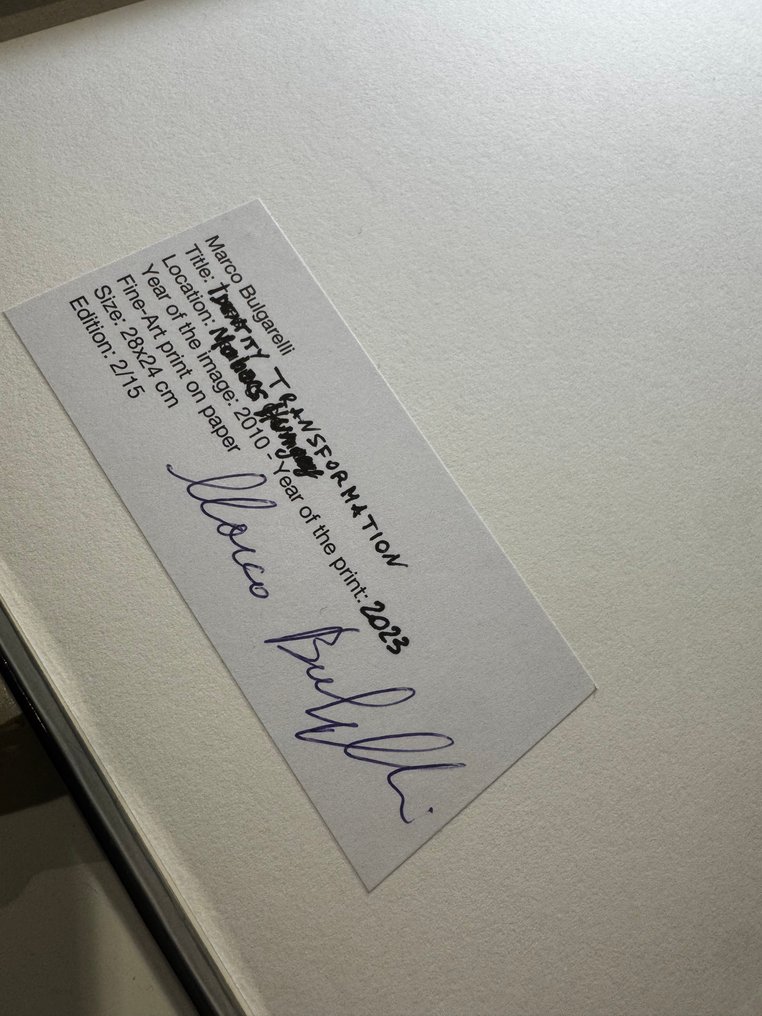 Marco Bulgarelli
Title: IDENTITY TRANSFORMATION
Location: Mohacs Hungary
Year of the image: 2010 - Year of the print: 2023
Fine-Art print on paper
Size: 28x24 cm
Edition: 2/15
Marco Bulgarelli